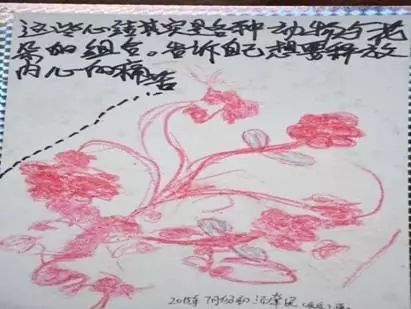 这些心结其实是各种动物与花
朵的组合。告诉自己想要释放
内心的痛苦
2015年7月份的